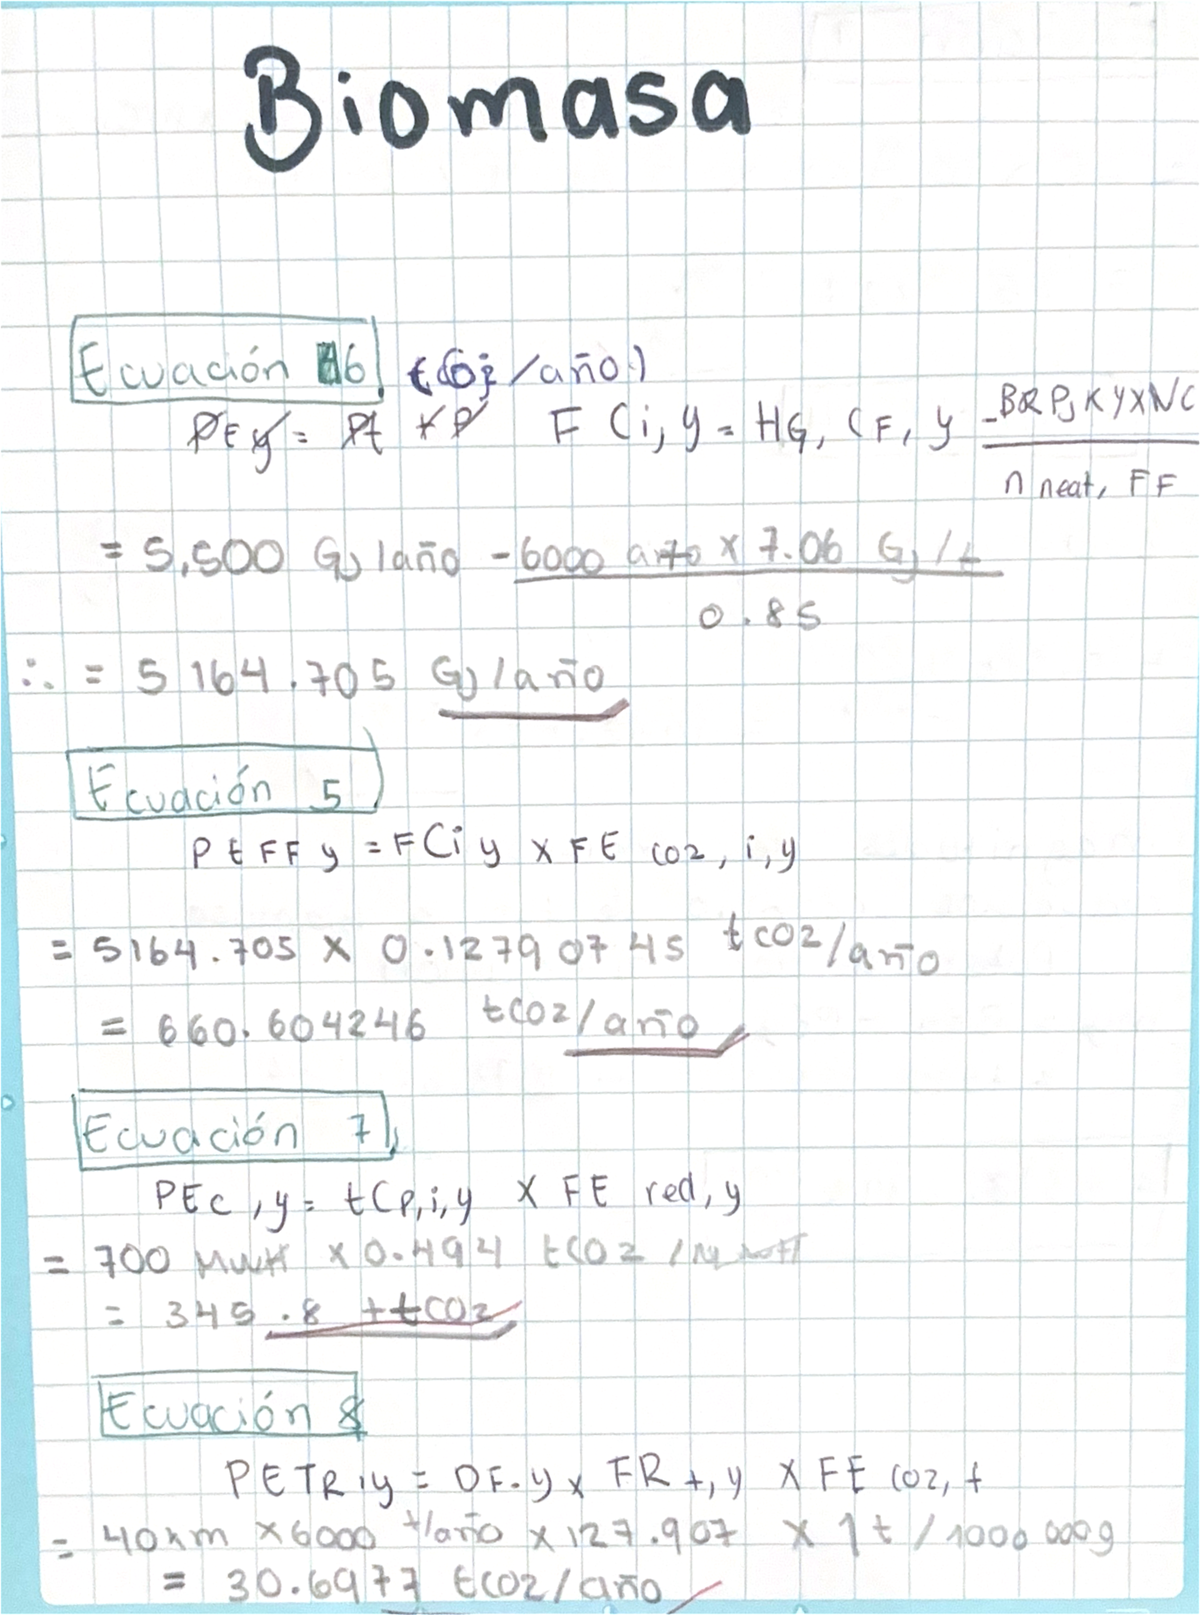 Biomasa
Ecuación 6 t(Gj/año)
PEy = Pt x P F Ci, y = HG, CF, y - BR PJ K Y x NC
n neat, FF
= 5,500 GJ/año - 6000 año x 7.06 GJ/t
0.85
∴ = 5 164.705 GJ/año
Ecuación 5
PEFF y = FCi y x FE CO2, i, y
= 5164.705 x 0.12790745 tCO2/año
= 660.604246 tCO2/año
Ecuación 7
PEC, y = tCp,i,y x FE red, y
= 700 MWH x 0.494 tCO2/MWH
= 345.8 ttCO2
Ecuación 8
PETR,y = DF.y x FR t, y x FE CO2, t
= 40km x 6000 t/año x 127.907 x 1t/1000 000g
= 30.6977 tCO2/año